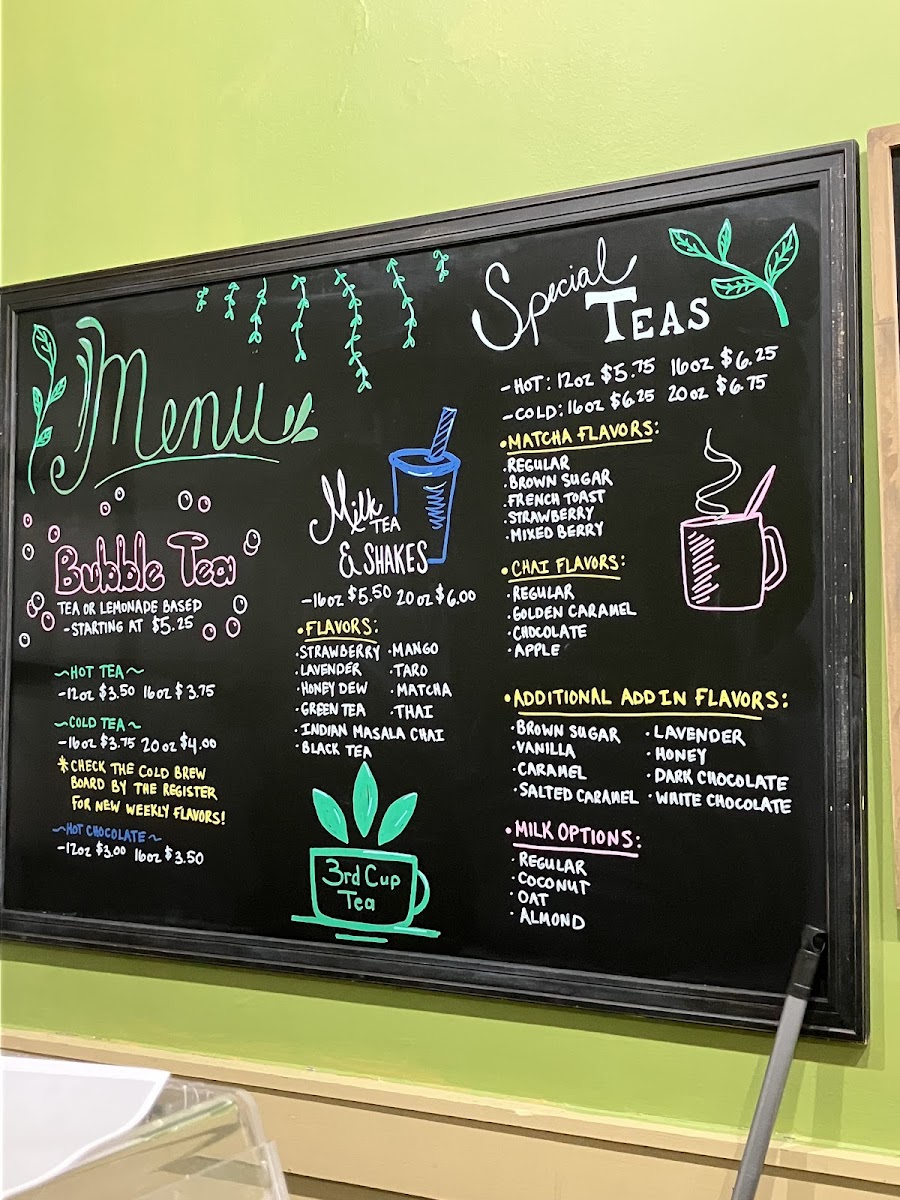 Menu
Bubble Tea
TEA OR LEMONADE BASED
-STARTING AT $5.25
~HOT TEA~
-12oz $3.50 16oz $3.75
~COLD TEA~
-16oz $3.75 20oz $4.00
*CHECK THE COLD BREW
BOARD BY THE REGISTER
FOR NEW WEEKLY FLAVORS!
~HOT CHOCOLATE~
-12oz $3.00 16oz $3.50
Milk
TEA
& SHAKES
-16oz $5.50 20oz $6.00
•FLAVORS:
·STRAWBERRY ·MANGO
·LAVENDER ·TARO
·HONEY DEW ·MATCHA
·GREEN TEA ·THAI
·INDIAN MASALA CHAI
·BLACK TEA
3rd Cup
Tea
Special
TEAS
-HOT: 12oz $5.75 16oz $6.25
-COLD: 16oz $6.25 20oz $6.75
•MATCHA FLAVORS:
·REGULAR
·BROWN SUGAR
·FRENCH TOAST
·STRAWBERRY
·MIXED BERRY
•CHAI FLAVORS:
·REGULAR
·GOLDEN CARAMEL
·CHOCOLATE
·APPLE
•ADDITIONAL ADD IN FLAVORS:
·BROWN SUGAR ·LAVENDER
·VANILLA ·HONEY
·CARAMEL ·DARK CHOCOLATE
·SALTED CARAMEL ·WHITE CHOCOLATE
•MILK OPTIONS:
·REGULAR
·COCONUT
·OAT
·ALMOND